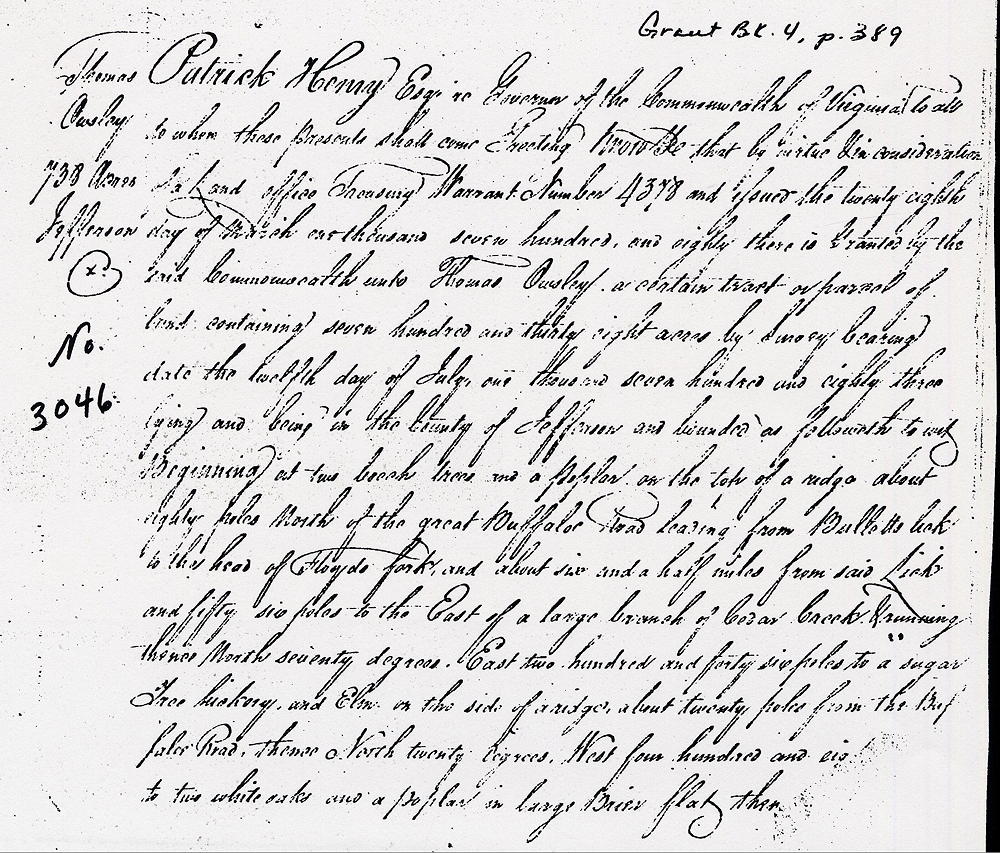 Grant Bk. 4, p. 389
Thomas
Owsley
738 Acres
Jefferson
x
No.
3046
Patrick Henry Esquire Governor of the Commonwealth of Virginia To all
to whom these presents shall come Greeting Know Ye that by virtue & in consideration
of a Land office Treasury Warrant Number 4378 and issued the twenty eighth
day of March one thousand seven hundred, and eighty there is Granted by the
said Commonwealth unto Thomas Owsley a certain tract or parcel of
land containing seven hundred and thirty eight acres by Survey bearing
date the twelfth day of July, one thousand seven hundred and eighty three
lying and being in the County of Jefferson and bounded as followeth to wit
Beginning at two beech trees and a poplar on the top of a ridge about
eighty poles North of the great Buffaloe Road leading from Bulletts lick
to the head of Floyds fork, and about six and a half miles from said Lick
and fifty six poles to the East of a large branch of Cedar Creek & running
thence North seventy degrees. East two hundred and forty six poles to a sugar
Tree hickory, and Elm on the side of a ridge, about twenty poles from the Buf
faloe Road, thence North twenty degrees, West four hundred and eig
to two white oaks and a poplar in large Brier flat then